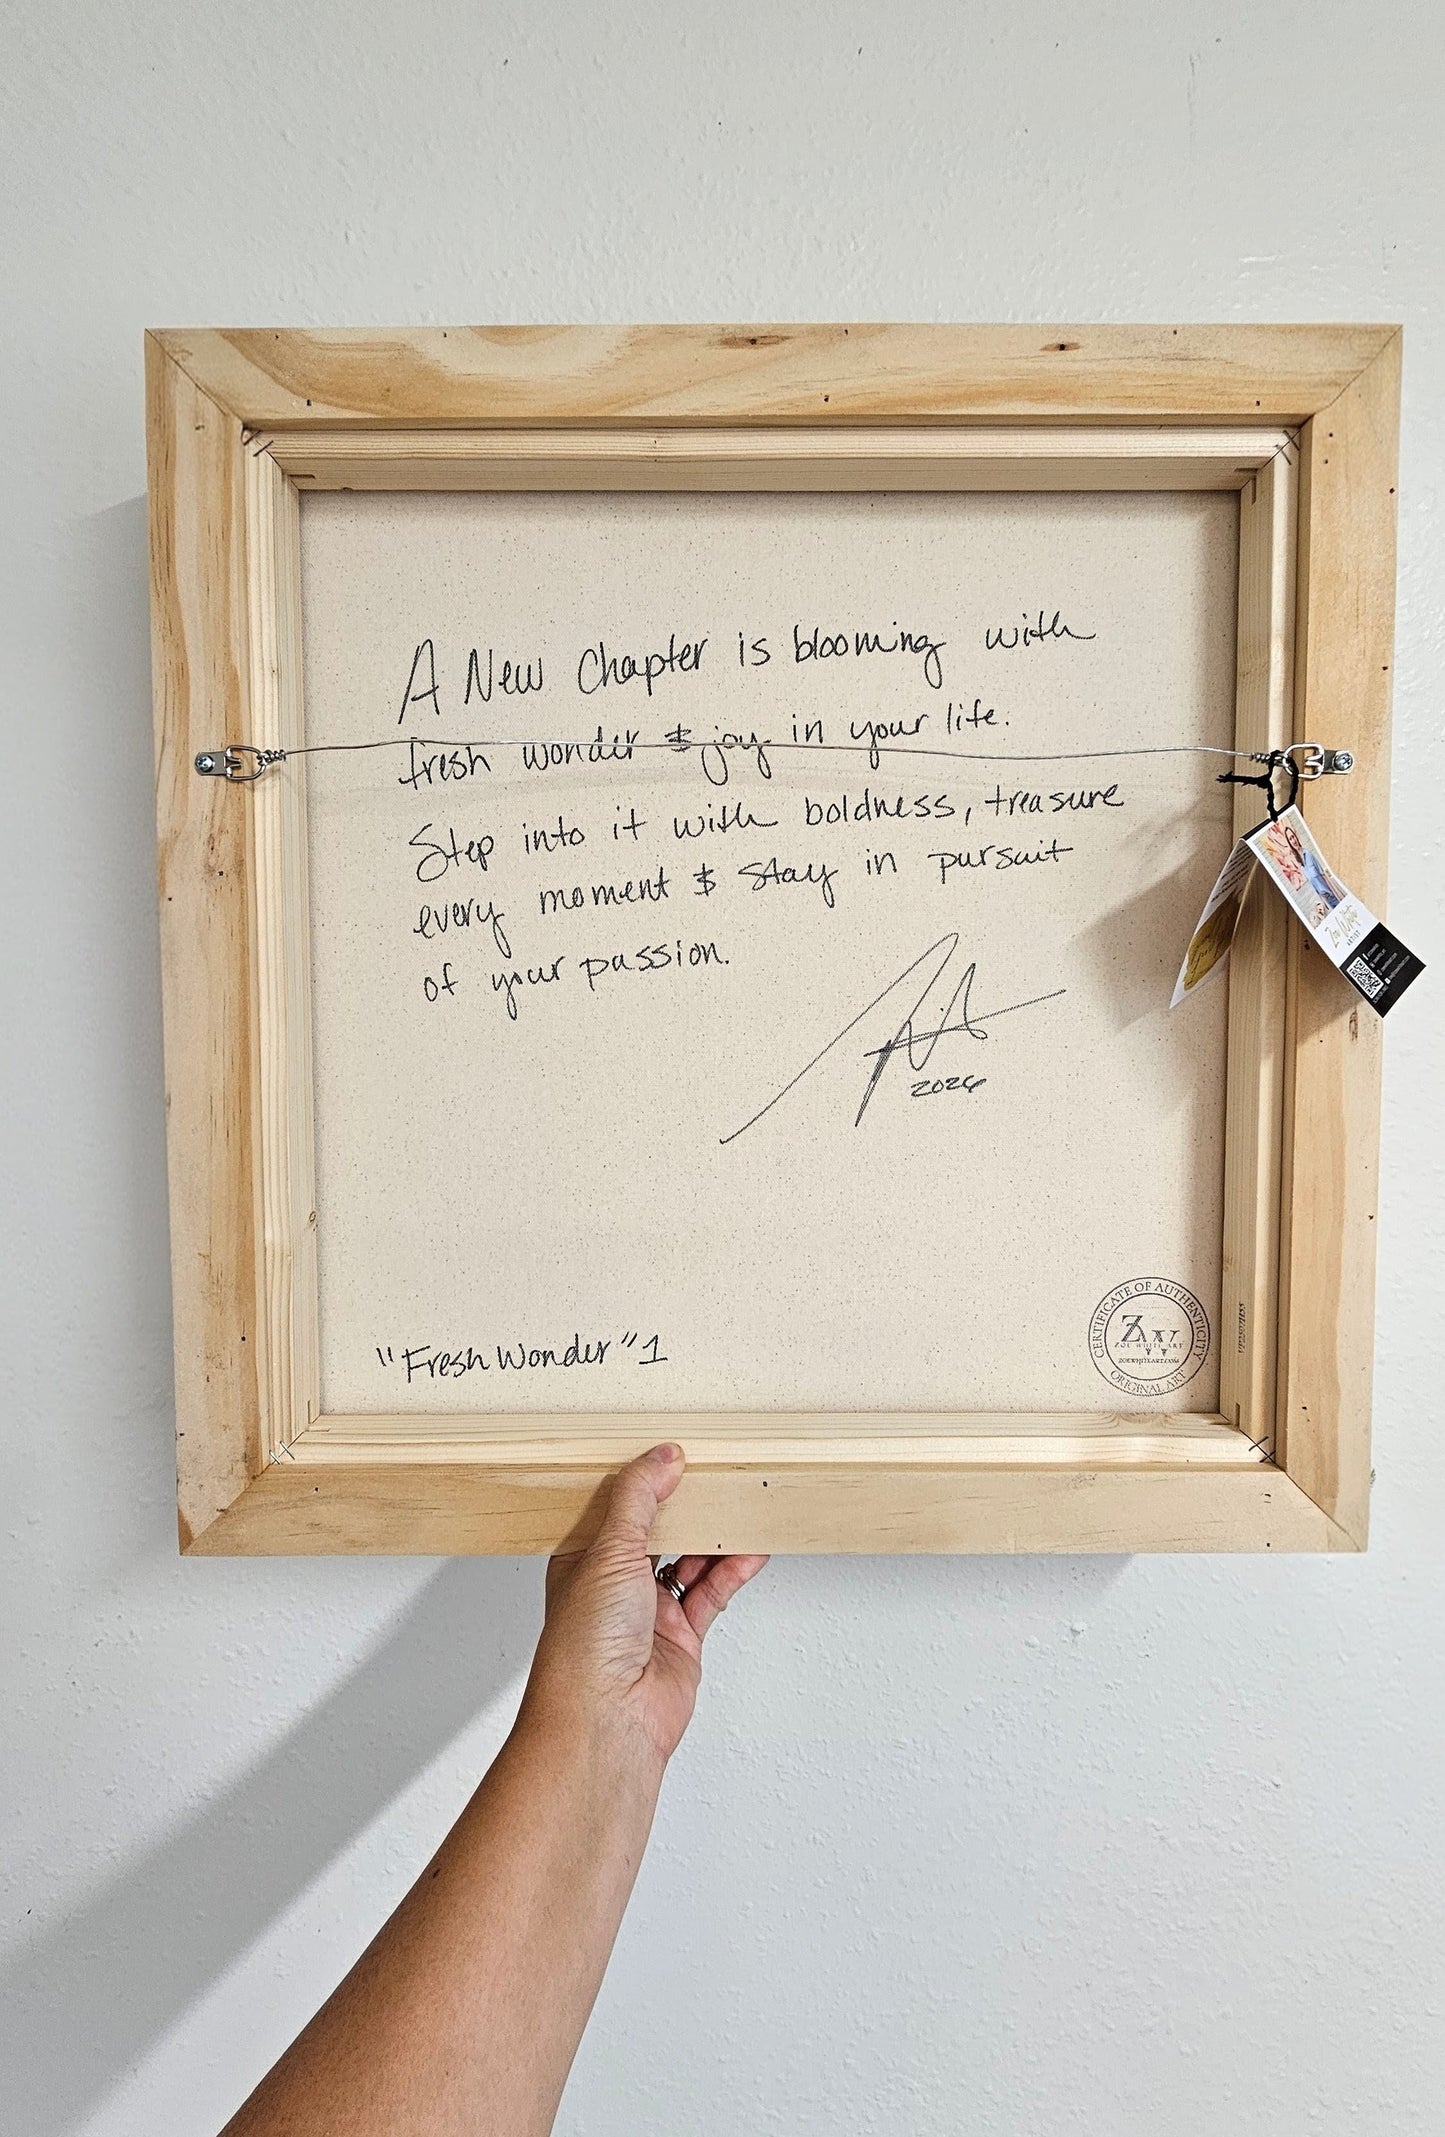 A New Chapter is blooming with
fresh wonder & joy in your life.
Step into it with boldness, treasure
every moment & stay in pursuit
of your passion.
2026
"Fresh Wonder" 1
CERTIFICATE OF AUTHENTICITY
ZW
ZOE WHITE ART
ZOEWHITEART.COM
ORIGINAL ART
Zoe White
ARTIST